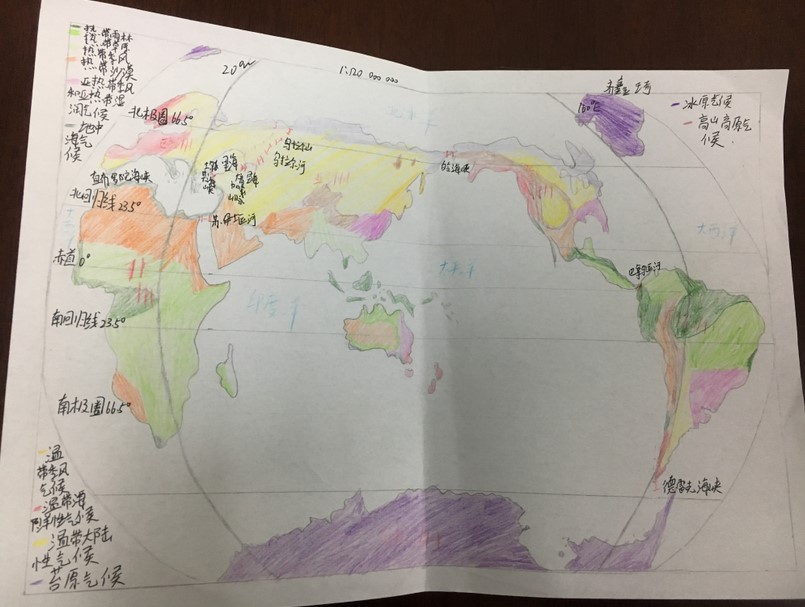 热带雨林
热带草原
热带季风
热带沙漠
亚热带季风
和亚热带湿
润气候
地中
海气候
20°W
1:120 000 000
北极圈66.5°
乌拉尔山
乌拉尔河
160°E
冰原气候
高山高原气
候
直布罗陀海峡
北回归线23.5°
苏伊士运河
白令海峡
大西洋
赤道0°
太平洋
巴拿马运河
印度洋
南回归线23.5°
南极圈66.5°
德雷克海峡
温
带季风
气候
温带海
洋性气候
温带大陆
性气候
苔原气候